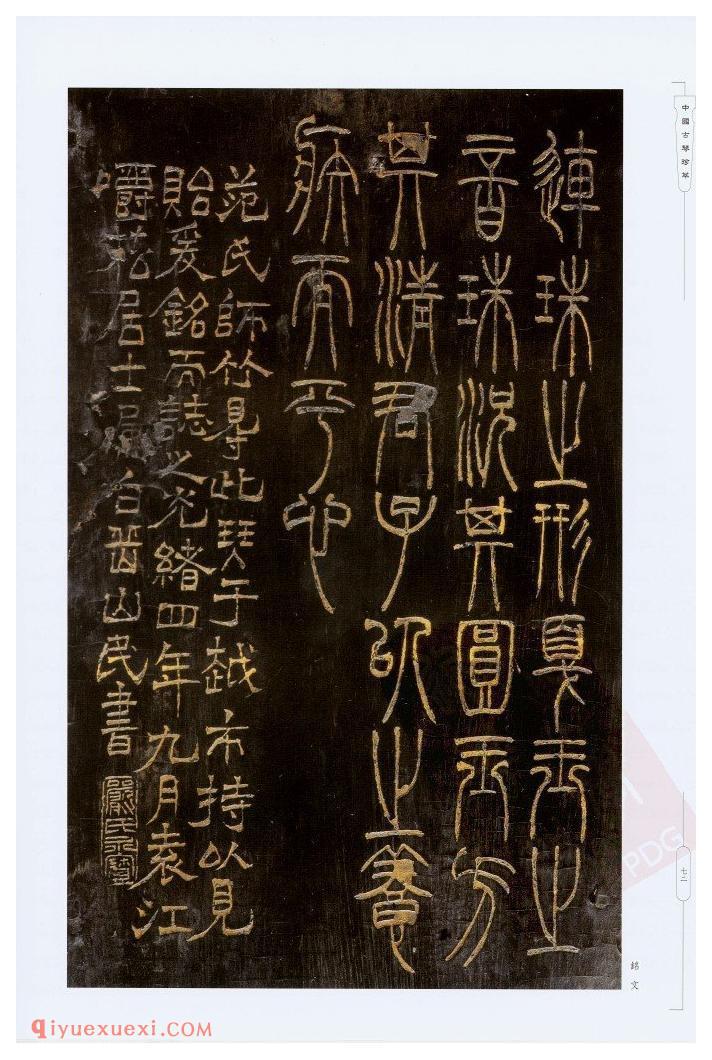 中國古琴珍萃
連珠之形夏玉之
音珠況其圓玉方
其清君子以之養
而平心
范氏師竹得此琴于越市持以見
貽爰銘而誌之光緒四年九月袁江
嚼菘居士屬白山民書
嚴氏永寶
七二
銘文
PDG
qiyuexuexi.COM